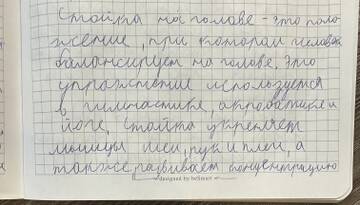 Стойка на голове - это поло
жение, при котором человек
балансирует на голове. Это
упражнение используется
в гимнастике, акробатике и
йоге. Стойка укрепляет
мышцы шеи, рук и плеч, а
также развивает концентрацию
designed by be.smart